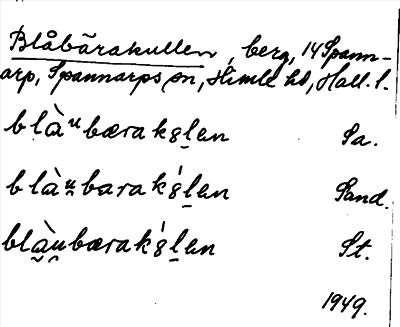 Blåbärakullen, berg, 14 Spann-
arp, Spannarps sn, Himle hd, Hall. l.
blàᵘbærak８l̲en Sa.
blàu̯barak８́l̲en Sand.
blà̯u̯bærak８́l̲en St.
1949.